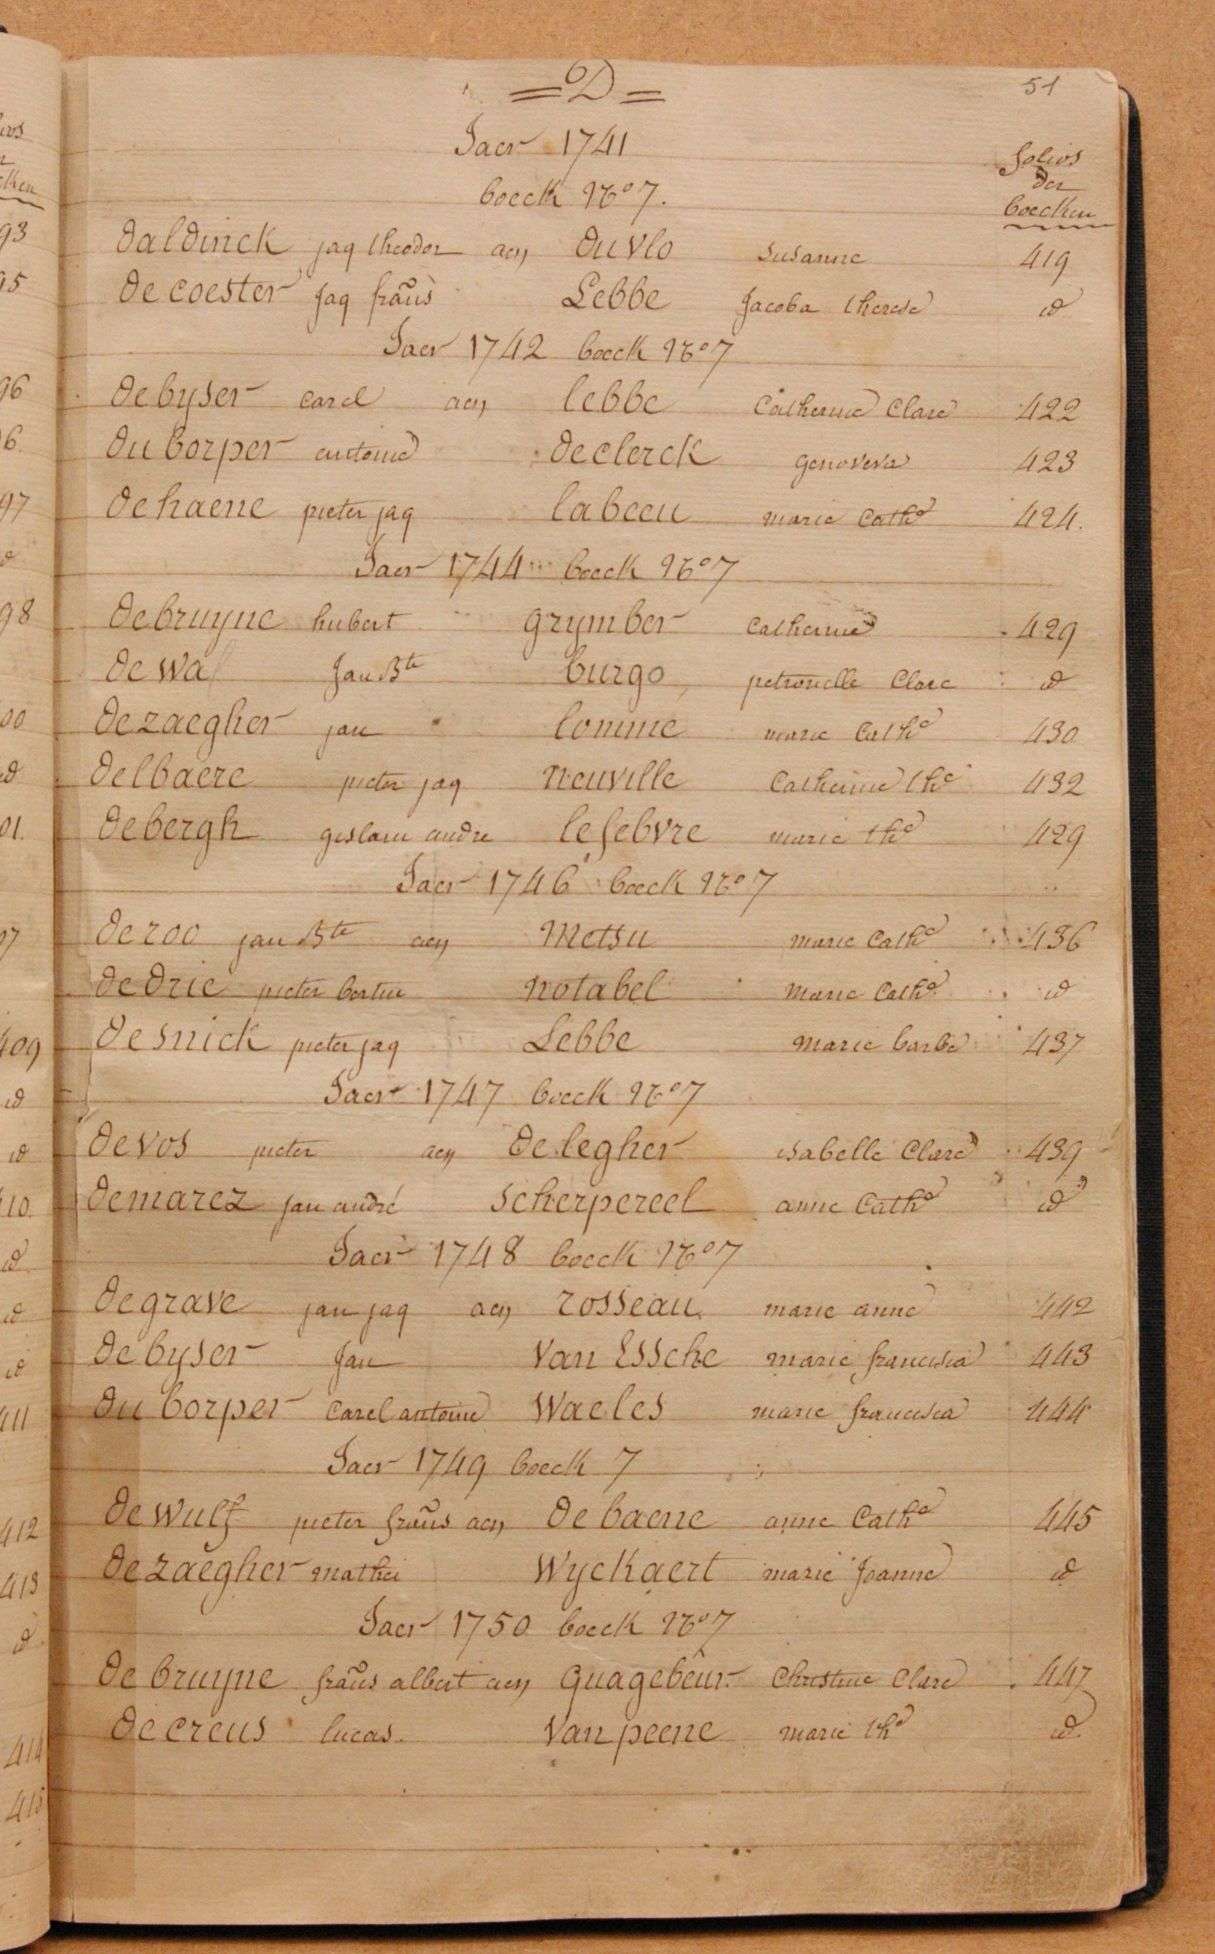 D
51
Jaer 1741
folios
der
boecken
boeck No 7.
daldinck jaq theodor aen duvlo susanne 419
de coester jaq frans Lebbe Jacoba therese id
Jaer 1742 boeck No 7
de byser carel aen lebbe Catherine Clare 422
du borper antoine de clerck genoveva 423
de haene pieter jaq labeeu marie Cathe 424.
Jaer 1744 boeck No 7
de bruyne hubert grymber catherine 429
de wa Jan Bte burgo petronelle Clare id
de zaegher jan lomme marie Cathe 430
delbaere pieter jaq neuville Catherine the 432
de bergh geslain andre lefebvre marie the 429
Jaer 1746 boeck No 7
de roo jan Bte aen Metsu marie Cathe 436
de drie pieter bertin notabel marie Cathe id
de snick pieter jaq Lebbe marie barbe 437
Jaer 1747 boeck No 7
de vos pieter aen de legher isabelle Clare 439
demarez jan andré scherpereel anne Cathe id
Jaer 1748 boeck No 7
de grave jan jaq aen rosseau marie anne 442
de byser Jan van Essche marie francisca 443
du borper carel antoine waeles marie francisca 444
Jaer 1749 boeck 7
de wulf pieter frans aen de baene anne Cathe 445
de zaegher mathei wyckaert marie Joanne id
Jaer 1750 boeck No 7
de bruyne frans albert aen quagebeur Christine Clare 447
de creus lucas. van peene marie the id